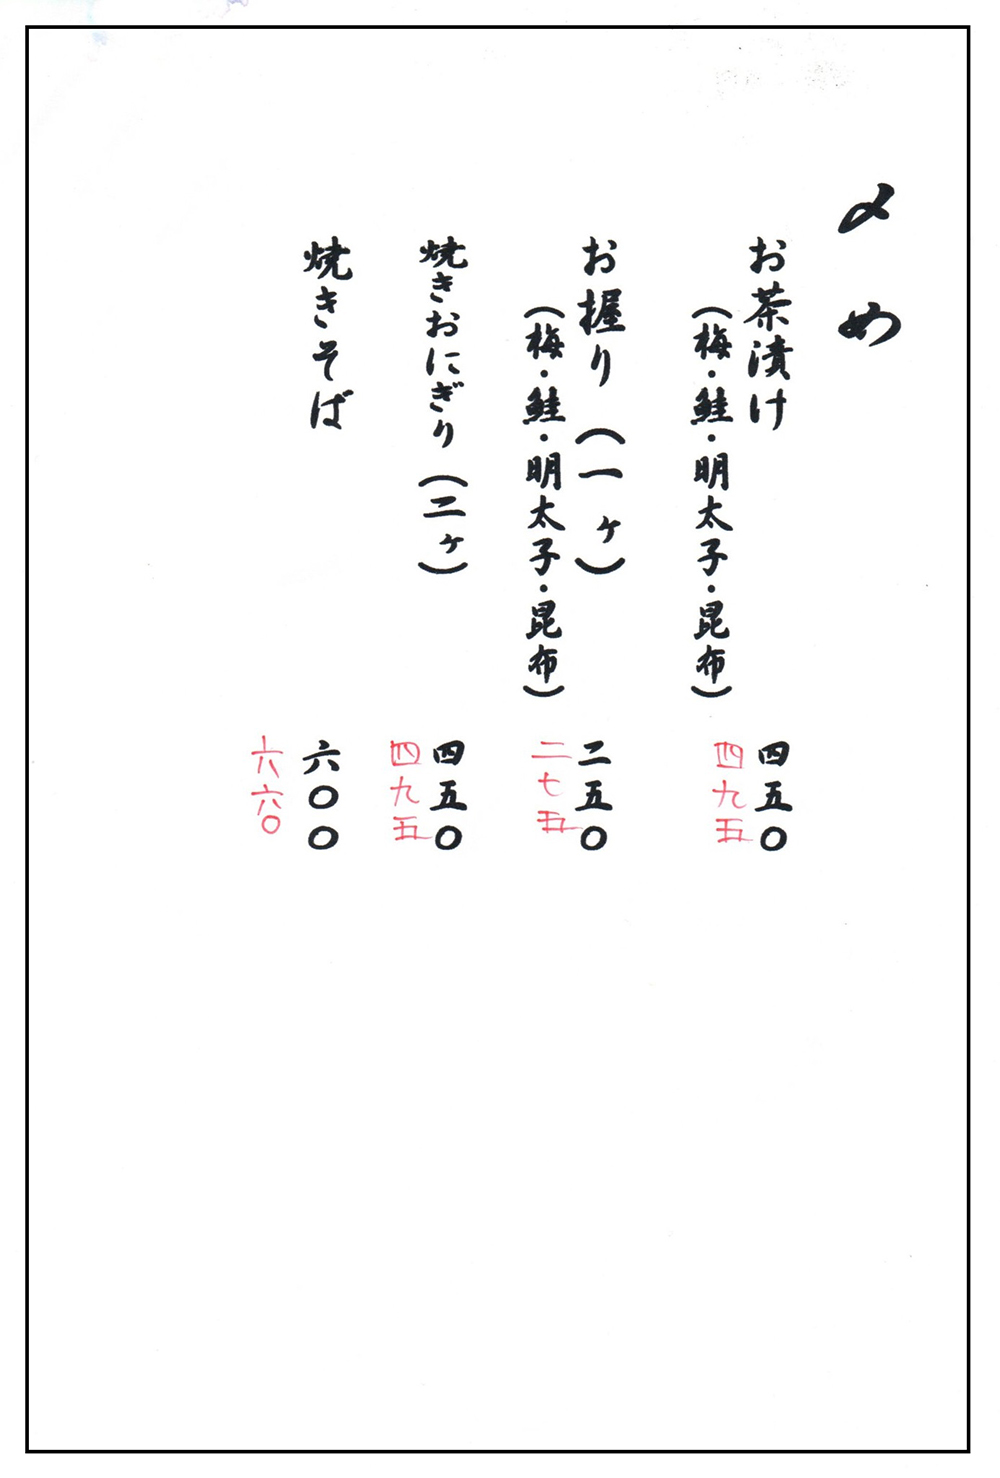 〆め
お茶漬け
(梅・鮭・明太子・昆布)
四五〇
四九五
お握り(一ヶ)
(梅・鮭・明太子・昆布)
二五〇
二七五
焼きおにぎり(二ヶ)
四五〇
四九五
焼きそば
六〇〇
六六〇